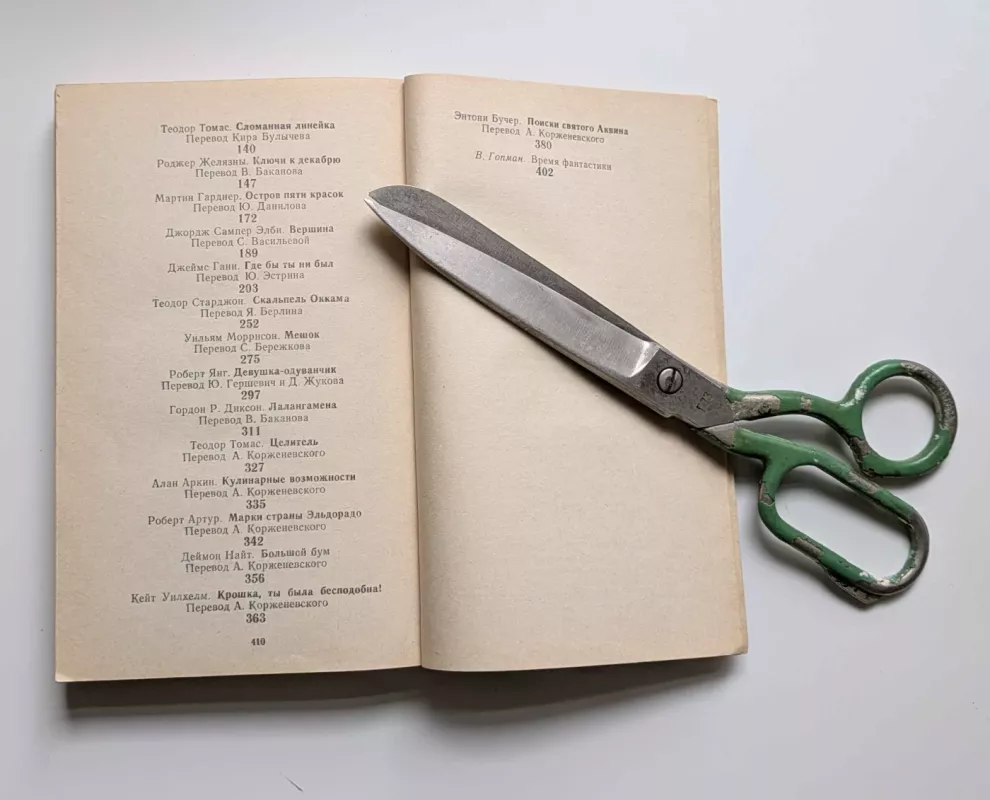 Теодор Томас. Сломанная линейка
Перевод Кира Булычева
140
Роджер Желязны. Ключи к декабрю
Перевод В. Баканова
147
Мартин Гарднер. Остров пяти красок
Перевод Ю. Данилова
172
Джордж Самнер Элби. Вершина
Перевод С. Васильевой
189
Джеймс Ганн. Где бы ты ни был
Перевод Ю. Эстрина
203
Теодор Старджон. Скальпель Оккама
Перевод Я. Берлина
252
Уильям Моррисон. Мешок
Перевод С. Бережкова
275
Роберт Янг. Девушка-одуванчик
Перевод Ю. Гершевич и Д. Жукова
297
Гордон Р. Диксон. Лалангамена
Перевод В. Баканова
311
Теодор Томас. Целитель
Перевод А. Корженевского
327
Алан Аркин. Кулинарные возможности
Перевод А. Корженевского
335
Роберт Артур. Марки страны Эльдорадо
Перевод А. Корженевского
342
Деймон Найт. Большой бум
Перевод А. Корженевского
356
Кейт Уилхелм. Крошка, ты была бесподобна!
Перевод А. Корженевского
363
410
Энтони Бучер. Поиски святого Аквина
Перевод А. Корженевского
380
В. Гопман. Время фантастики
402